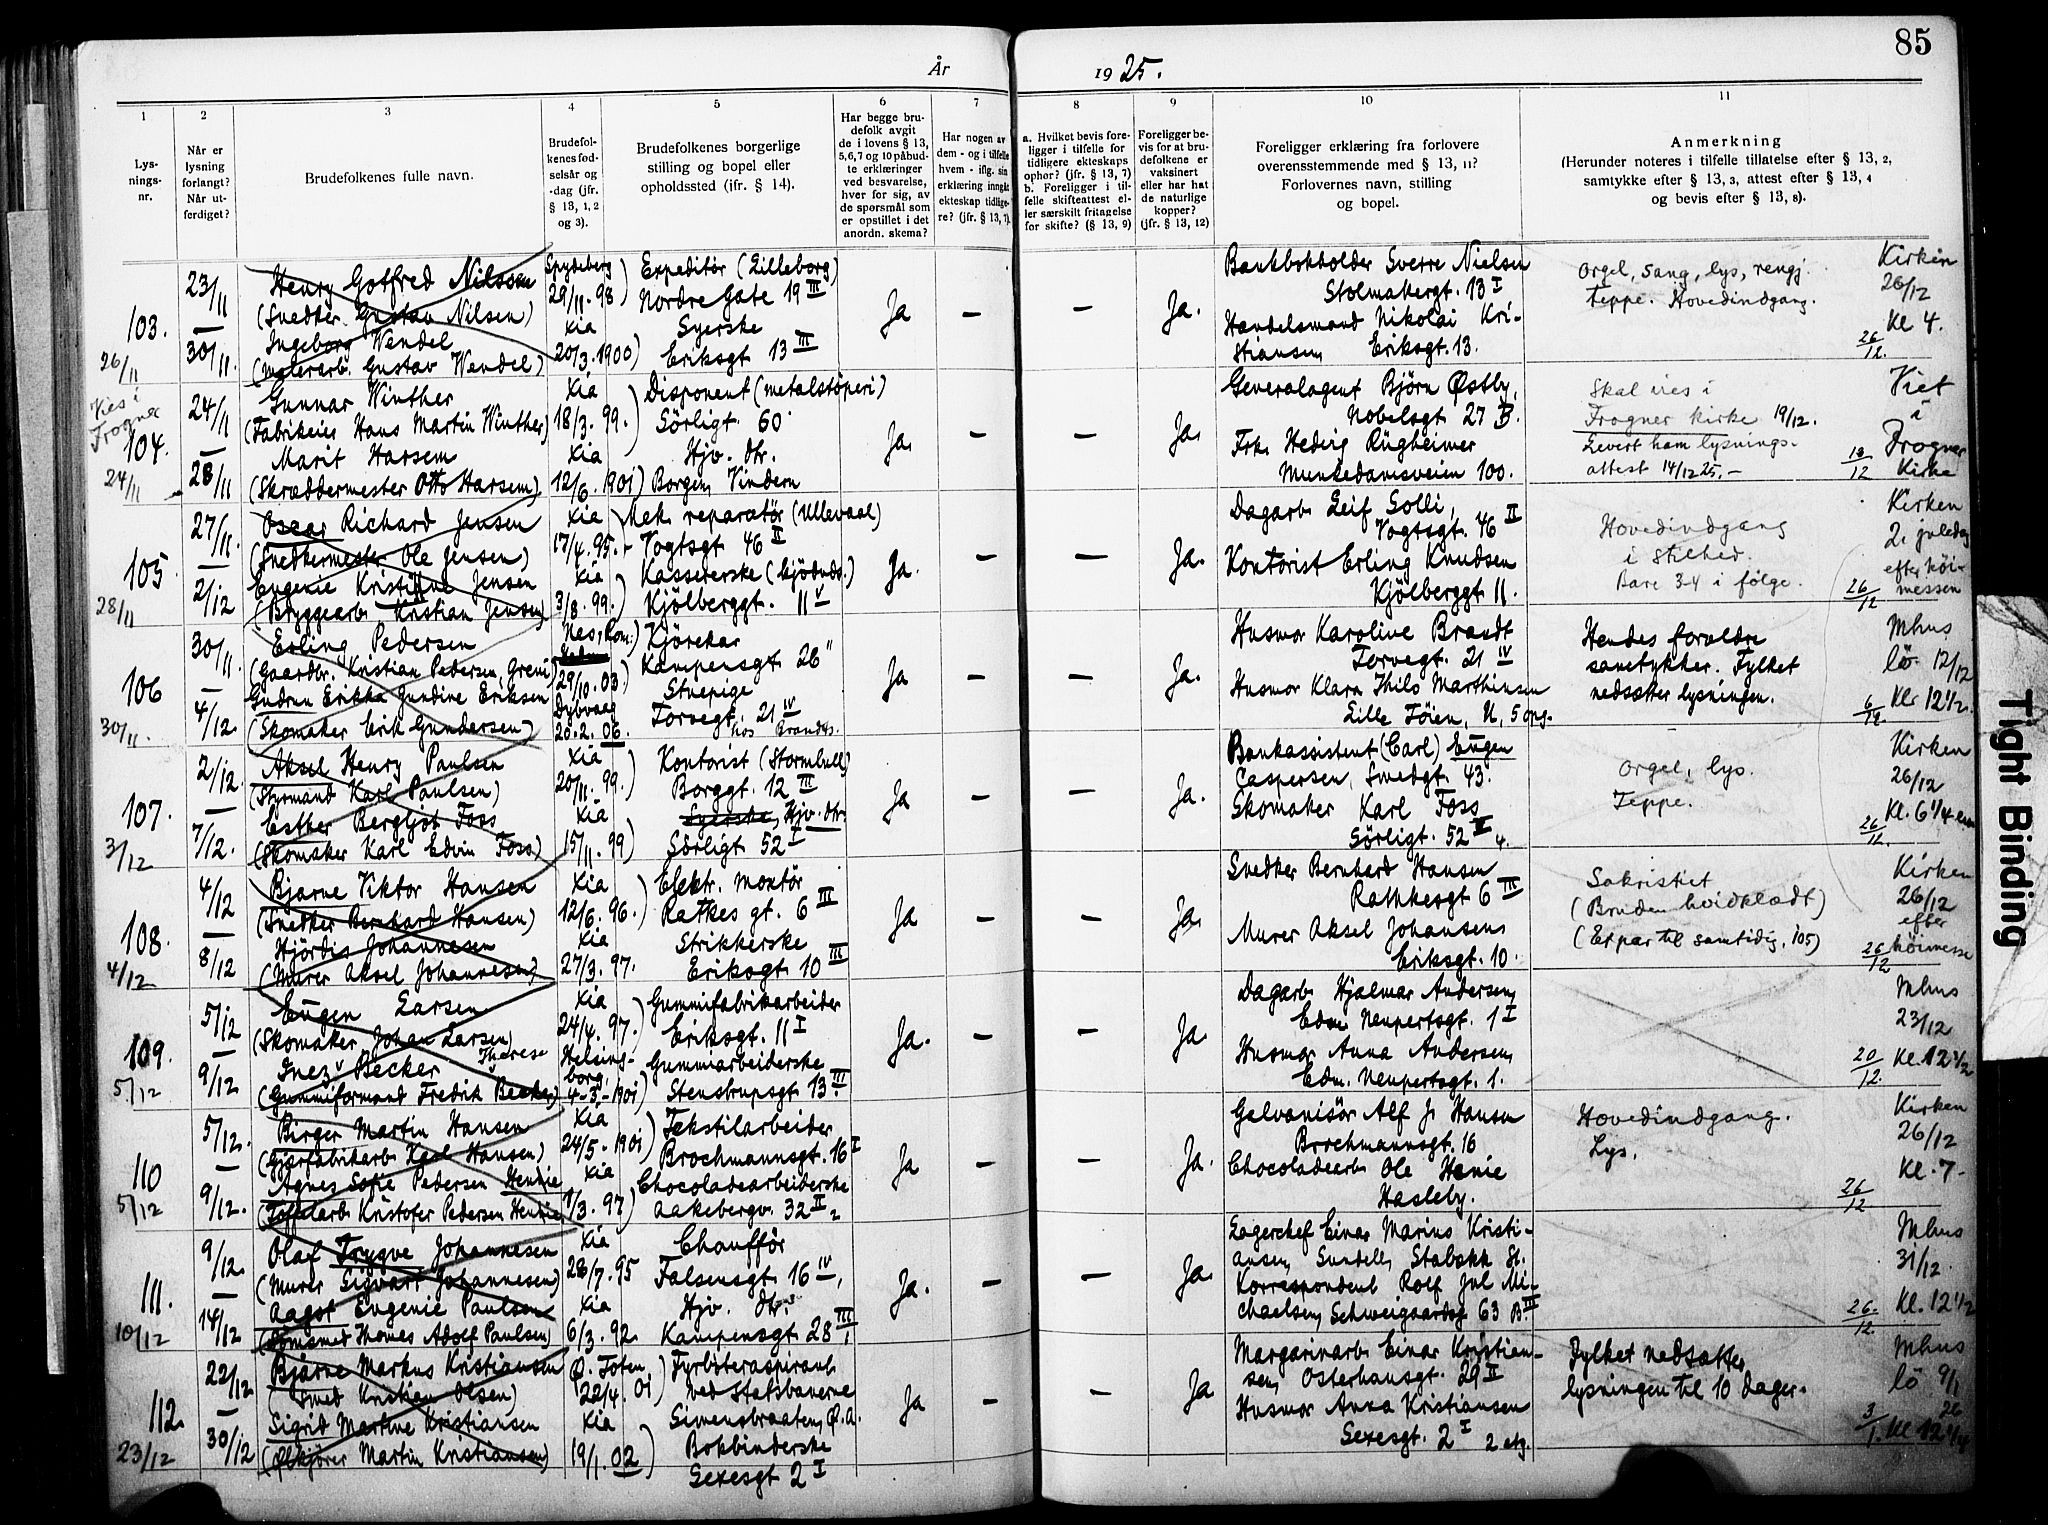 85
År
19 25.
1
2
3
4
5
6
7
8
9
10
11
Lys-
nings-
nr.
Når er
lysning
forlangt?
Når ut-
ferdiget?
Brudefolkenes fulle navn.
Brudefol-
kenes fød-
selsår og
-dag (jfr.
§ 13, 1, 2
og 3).
Brudefolkenes borgerlige
stilling og bopel eller
opholdssted (jfr. § 14).
Har begge bru-
defolk avgit
de i lovens § 13,
5, 6, 7 og 10 påbud-
te erklæringer
ved besvarelse,
hver for sig, av
de spørsmål som
er opstillet i det
anordn. skema?
Har nogen av
dem - og i tilfelle
hvem - iflg. sin
erklæring inngåt
ekteskap tidlige-
re? (jfr. § 13, 7).
a. Hvilket bevis fore-
ligger i tilfelle for
tidligere ekteskaps
ophor? (jfr. § 13, 7)
b. Foreligger i til-
felle skifteattest el-
ler særskilt fritagelse
for skifte? (§ 13, 9)
Foreligger be-
vis for at bru-
defolkene er
vaksinert
eller har hat
de naturlige
kopper?
(jfr. § 13, 12)
Foreligger erklæring fra forlovere
overensstemmende med § 13, 11?
Forlovernes navn, stilling
og bopel.
Anmerkning
(Herunder noteres i tilfelle tillatelse efter § 13, 2,
samtykke efter § 13, 3, attest efter § 13, 4
og bevis efter § 13, 8).
103.
26/11
23/11
30/11.
Henry Gotfred Nilsson
(Snedker Gustav Nilsen)
Ingeborg Wendel
(Malerarb. Gustav Wendel)
Spydeberg
29/11. 98)
Kia
20/3. 1900)
Expeditör (Lilleborg)
Nordre Gate 19 III
Syerske
Eriksgt 13 III
Ja
–
–
Ja.
Bankbokholder Sverre Nielsen
Stolmakergt. 13 I
Handelsmand Nikolai Kri-
stiansen, Eriksgt. 13.
Orgel, sang, lys, rengj.
Teppe. Hovedindgang.
Kirken
26/12
Kl 4.
26/12.
Vies i
Frogner
104.
24/11
24/11
28/11
Gunnar Winther
(Fabrikeier Hans Martin Winther)
Marit Harsem
(Skræddermester Otto Harsem)
Kia
18/3. 99.)
Kia
12/6. 1901)
Disponent (metalstöperi)
Sörligt. 60
Hjv. dtr.
Borgen, Vindern
Ja.
–
–
Ja.
Generalagent Björn Østby,
Nobelsgt 27 B.
Frk. Hedvig Rügheimer
Munkedamsveien 100.
Skal vies i
Frogner kirke 19/12.
Levert ham lysnings-
attest 14/12 25. –
Viet
i
Frogner
Kirke
19/12
105.
28/11
27/11.
2/12
Oscar Richard Jensen
(Snedkermester Ole Jensen)
Eugenie Kristine Jensen
(Bryggearb. Kristian Jensen)
Kia
17/4. 95.
Kia
3/8. 99.)
Mek. reparatör (Ullevaal)
Vogtsgt 46 II
Kassererske
Kjölberggt. 11 V
Ja.
–
–
Ja.
Dagarb. Leif Solli,
Vogtsgt. 46 II
Kontorist Erling Knudsen
Kjölberggt 11.
Hovedindgang
i stilhed.
Bare 3-4 i følge.
Kirken
2. juledag
efter höi-
messen
26/12
106
30/11.
30/11.
4/12.
Erling Pedersen
(Gaardbr. Kristian Pedersen, Greni)
Gudrun Erikka Gundine Eriksen
(Skomaker Erik Gundersen)
Nes, Rom.)
29/10. 03)
Dybvaag
20. 2. 06.
Kjörekar
Kampensgt. 26
Stuepige
Torvegt. 21 IV
hos Brandts.
Ja
–
–
Ja.
Husmor Karoline Brandt
Torvegt. 21 IV
Husmor Klara Thilo Marthinsen
Lille Töien, N, 5 opg.
Hendes foreldre
samtykker. Fylket
nedsætter lysningen.
Mhus
lö. 12/12
Kl. 12 1/2.
107.
3/12
2/12.
7/12.
Aksel Henry Paulsen
(Styrmand Karl Paulsen)
Esther Bergljot Foss
(Skomaker Karl Edvin Foss)
Kia
20/11. 99.)
Kia
15/11. 99)
Kontorist (Stormbull)
Borggt. 12 III
Syerske, Hjv. dtr.
Sörligt. 52 I
Ja
–
–
Ja.
Bankassistent (Carl) Eugen
Caspersen, Smedgt. 43.
Skomaker Karl Foss
Sörligt. 52 V 4.
Orgel, lys.
Teppe.
Kirken
26/12
Kl. 6 1/4 em
26/12.
108.
4/12
4/12
8/12
Bjarne Viktor Hansen
(Snedker Bernhard Hansen)
Hjördis Johannesen
(Murer Aksel Johannesen)
Kia
12/6. 96.)
Kia
27/3. 97.
Elektr. montör
Ratkes gt. 6 III
Strikkerske
Eriksgt. 10 III
Ja
–
–
Ja.
Snedker Bernhard Hansen
Rathkesgt 6 III
Murer Aksel Johansen,
Eriksgt. 10.
Sakristiet
(Bruden hvidklædt)
(Et par til samtidig, 105)
Kirken
26/12
efter
höimesse
26/12
109.
5/12
5/12
9/12
Eugen Larsen
(Skomaker Johan Larsen)
Therese
Inez v Becker
(Gummiformand Fredrik Becker)
Kia
24/4. 97.)
Helsing-
borg.
4-3.-1901)
Gummifabrikarbeider
Eriksgt. 11 I
Gummiarbeiderske
Stensbrupsgt 13 III
Ja.
–
–
Ja.
Dagarb. Hjalmar Andersen,
Edm Neupertsgt. 1 I
Husmor Anna Andersen,
Edm. Neupertsgt. 1.
Mhus
23/12
Kl. 12 1/2
20/12.
110
5/12
5/12.
9/12.
Birger Martin Hansen
(Gjærfabrikarb. Karl Hansen)
Agnes Sofie Pedersen Henie
(Töffelarb. Kristofer Pedersen Henie)
Kia
24/5. 1901)
Kia
1/3. 97)
Tekstilarbeider
Brochmannsgt. 16 I
Chocoladearbeiderske
Aakebergv. 32 II 2
Ja
–
–
Ja.
Galvanisör Alf J. Hansen
Brochmannsgt. 16
Chocoladearb. Ole Henie
Hasleby.
Hovedindgang.
Lys.
Kirken
26/12
Kl. 7-
26/12
111.
10/12
9/12.
14/12
Olaf Trygve Johannesen
(Murer Sigvart Johannesen)
Aagot Eugenie Paulsen
Thomas Adolf Paulsen)
Kia
28/7. 95
Kia
6/3. 92.
Chaufför
Falsensgt. 16 IV,
Hjv. dtr.
Kampensgt. 28 III
Ja.
–
–
Ja.
Lagerchef Einar Marius Kristi-
ansen, Sundell, Stabekk St.
Korrespondent Rolf Jul Mi-
chaelsen, Schweigaardsg 63 B. III
Mhus
31/12.
Kl. 12 1/2
26./12.
112.
23/12
22/12
30/12
Bjarne Markus Kristiansen
(Smed Kristian Olsen)
Sigrid Martine Kristiansen
(Ølkjörer Martin Kristiansen)
Ø. Toten
22/4. 01)
Kia
19/1. 02)
Fyrböteraspirant
ved Statsbanerne
Simensbraaten, Ø.A.
Bokbinderske
Sexesgt 2 I
Ja
–
–
Ja
Margarinarb. Einar Kristian-
sen, Osterhausgt. 29 II
Husmor Anna Kristiansen
Sexesgt. 2 I 2 etg.
Fylket nedsætter
lysningen til 10 dager.
Mhus
lö 9/1
26
Kl 12 1/4
3/1.
Tight Binding